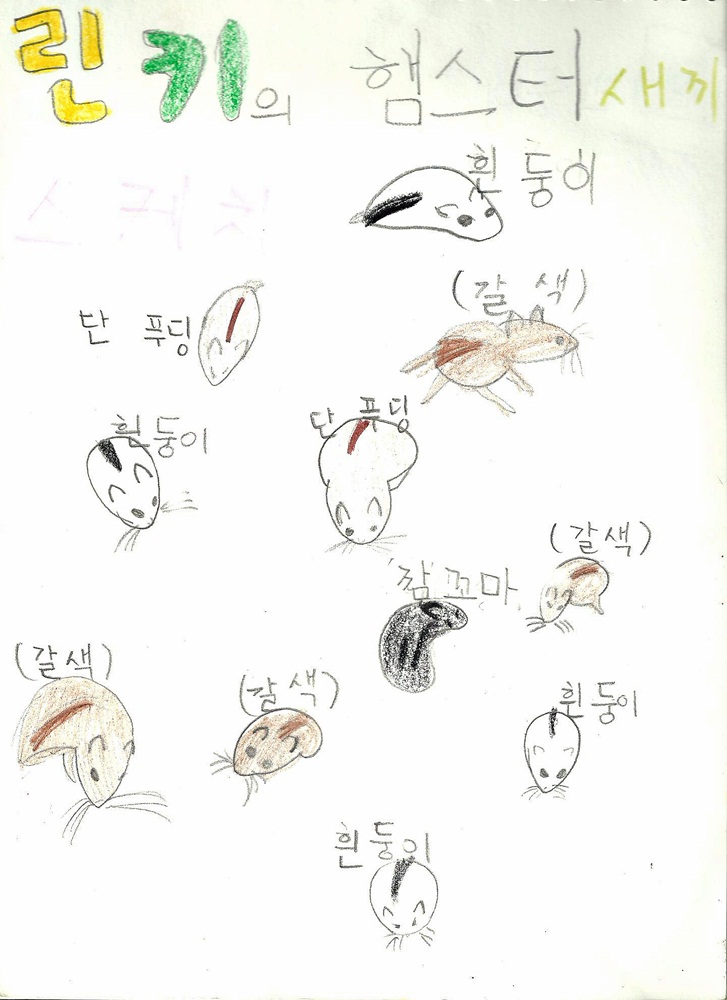 린키의 햄스터 새끼
스케치
흰둥이
단 푸딩
(갈색)
흰둥이
단 푸딩
(갈색)
참꼬마
(갈색)
(갈색)
흰둥이
흰둥이